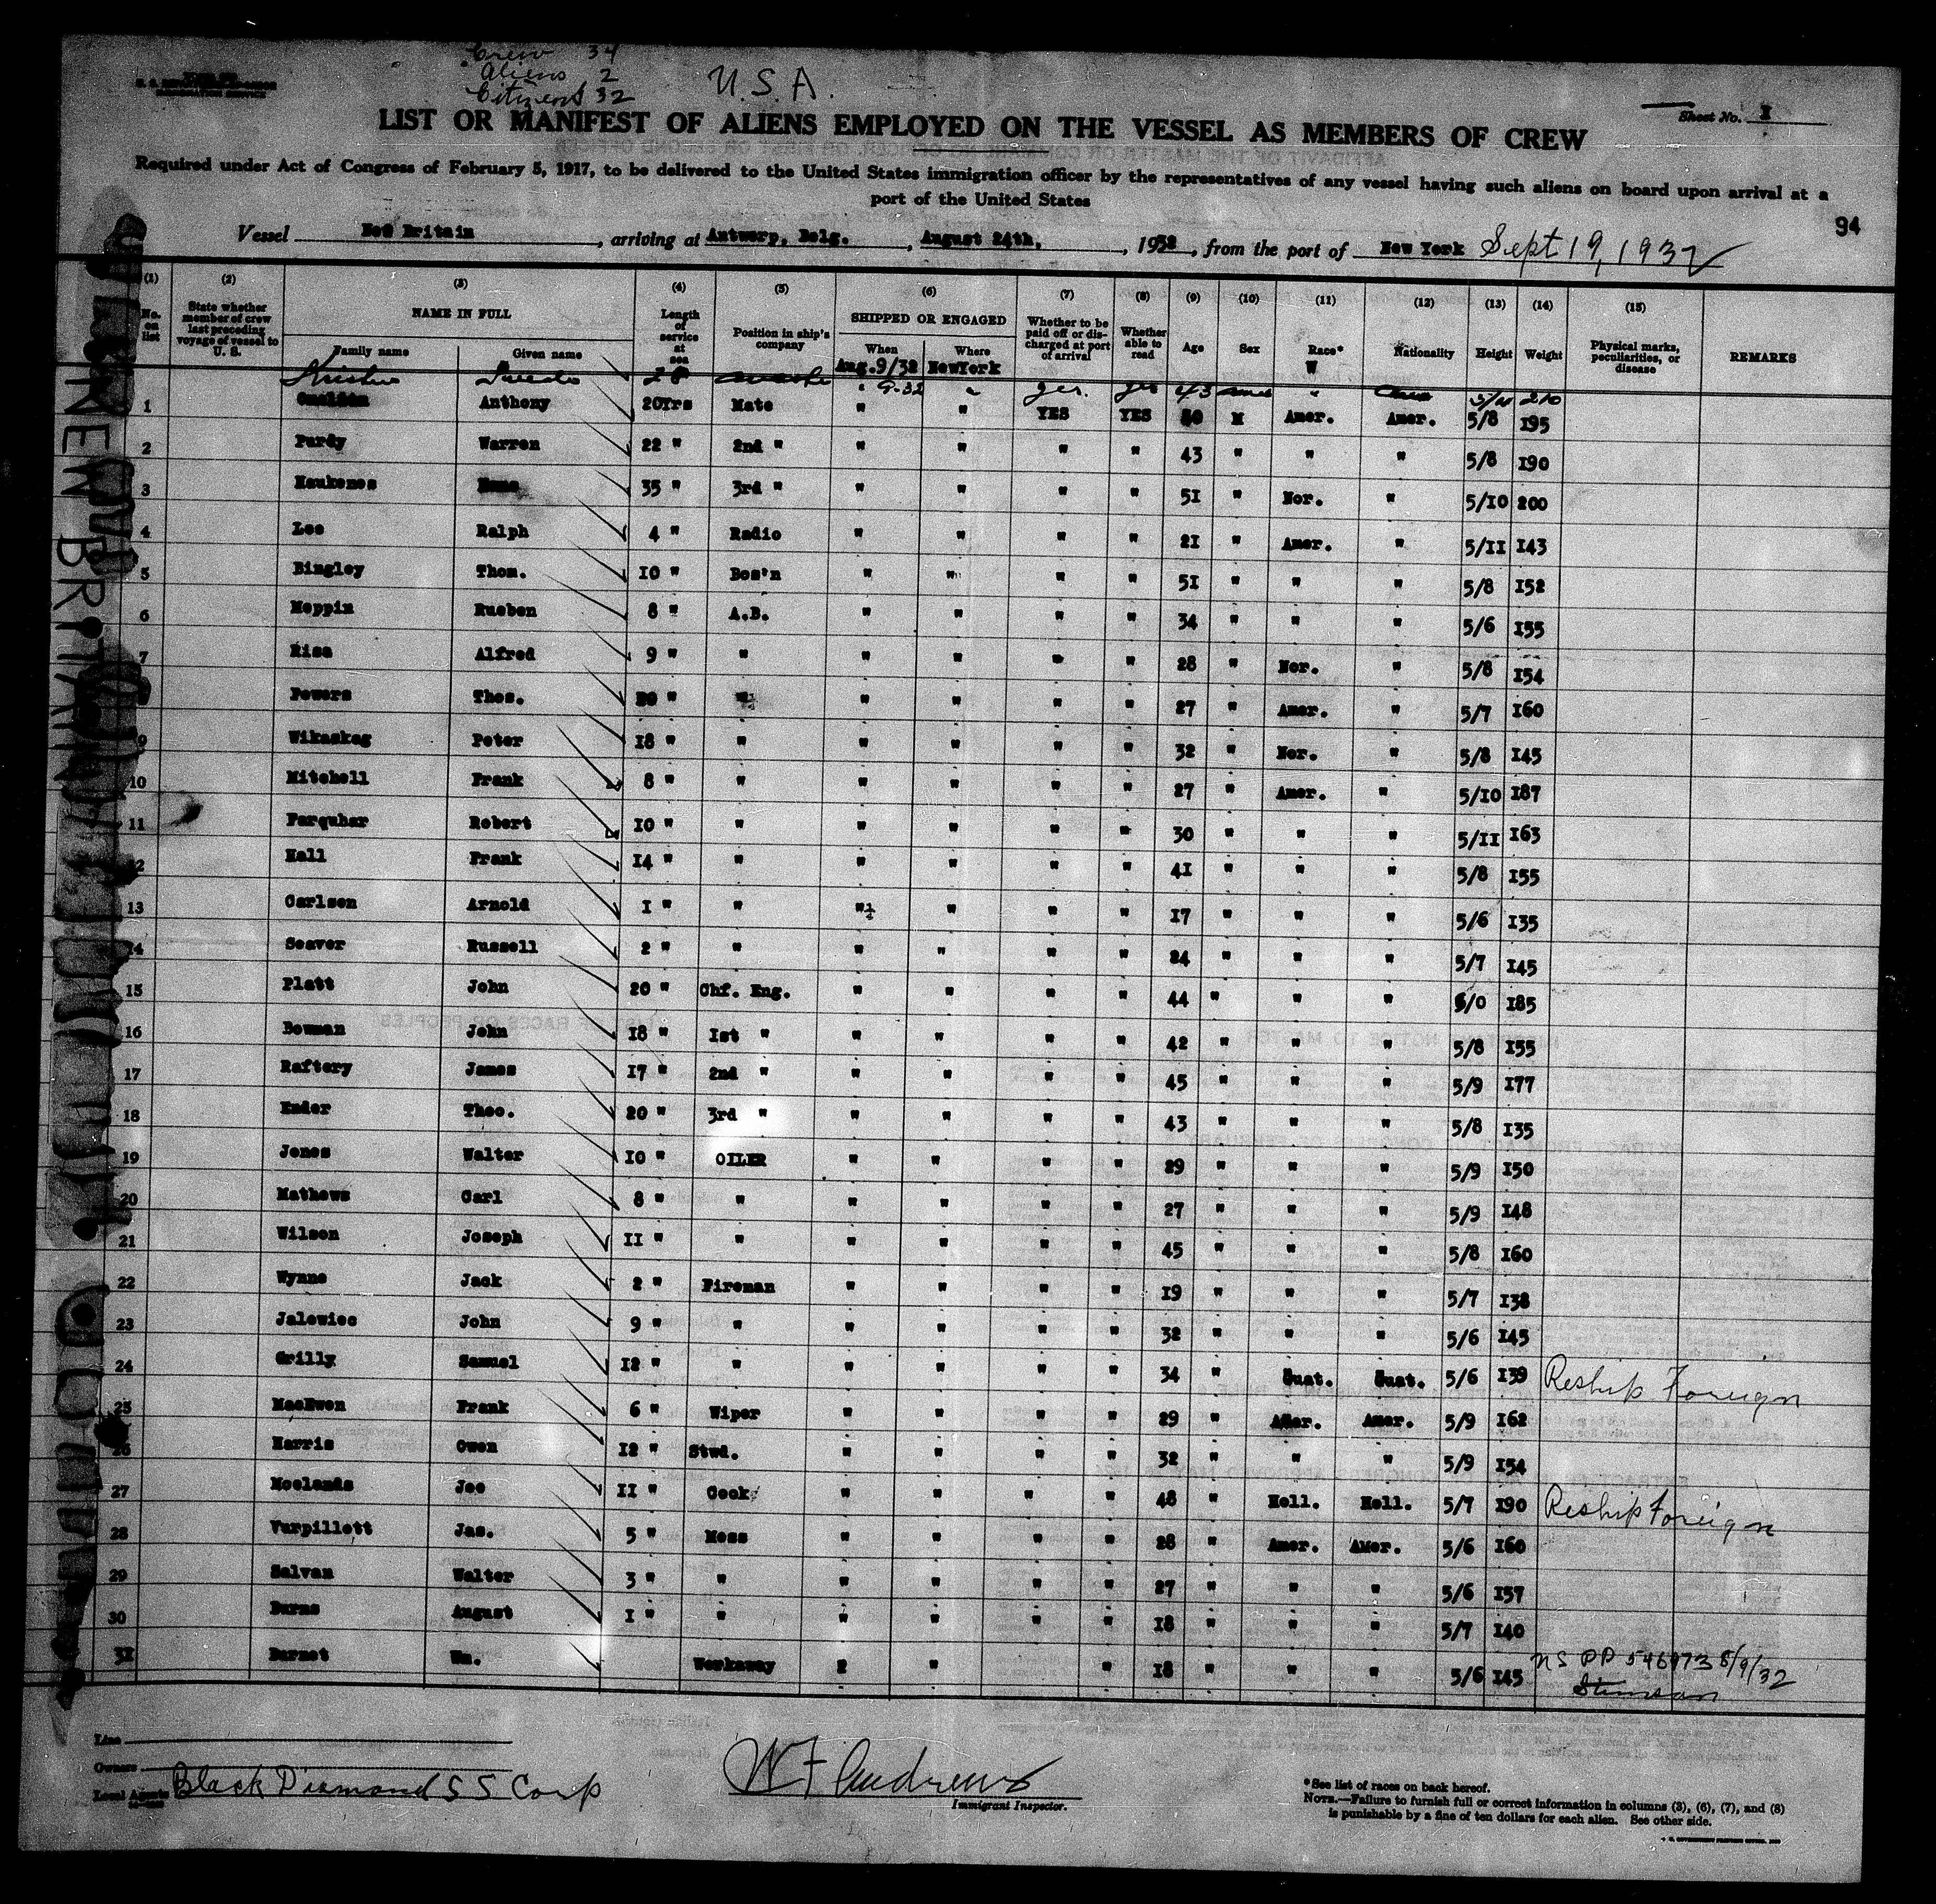 Crew 34
Aliens 2
Citizens 32
U.S.A.
Sheet No. 1
LIST OR MANIFEST OF ALIENS EMPLOYED ON THE VESSEL AS MEMBERS OF CREW
Required under Act of Congress of February 5, 1917, to be delivered to the United States immigration officer by the representatives of any vessel having such aliens on board upon arrival at a
port of the United States
94
Vessel New Britain, arriving at Antwerp, Belg., August 24th, 1932, from the port of New York Sept 19, 1932
(1) (2) (3) (4) (5) (6) (7) (8) (9) (10) (11) (12) (13) (14) (15)
No. on list State whether member of crew last preceding voyage of vessel to U. S. NAME IN FULL Family name Given name Length of service at sea Position in ship's company SHIPPED OR ENGAGED When Where Whether to be paid off or discharged at port of arrival Whether able to read Age Sex Race* Nationality Height Weight Physical marks, peculiarities, or disease REMARKS
Aug.9/32 NewYork W
28 " 9-32 " yes. yes 43 " 210
1 Anthony 20Yrs Mate " " YES YES M Amer. Amer. 5/8 195
2 Purdy Warren 22 " 2nd " " " " " 43 " " " 5/8 190
3 Haukenes 35 " 3rd " " " " " 51 " Nor. " 5/10 200
4 Lee Ralph 4 " Radio " " " " 21 " Amer. " 5/11 143
5 Bingley Thom. 10 " Bos'n " " " " 51 " " " 5/8 152
6 Meppin Rueben 8 " A.B. " " " " 34 " " " 5/6 155
7 Risa Alfred 9 " " " " " " 28 " Nor. " 5/8 154
Powers Thos. " " " " " " 27 " Amer. " 5/7 160
9 Wikaskog Peter 18 " " " " " " 32 " Nor. " 5/8 145
10 Mitchell Frank 8 " " " " " " 27 " Amer. " 5/10 187
11 Farquhar Robert 10 " " " " " " 30 " " " 5/11 163
12 Hall Frank 14 " " " " " " 41 " " " 5/8 155
13 Carlsen Arnold 1 " " " " " " 17 " " " 5/6 135
14 Seaver Russell 2 " " " " " " 24 " " " 5/7 145
15 Platt John 20 " Chf. Eng. " " " " 44 " " " 6/0 185
16 Bowman John 18 " 1st " " " " " 42 " " " 5/8 155
17 Raftery James 17 " 2nd " " " " " 45 " " " 5/9 177
18 Ender Theo. 20 " 3rd " " " " " 43 " " " 5/8 135
19 Jones Walter 10 " OILER " " " " 29 " " " 5/9 150
20 Mathews Carl 8 " " " " " " 27 " " " 5/9 148
21 Wilson Joseph 11 " " " " " " 45 " " " 5/8 160
22 Wynne Jack 2 " Fireman " " " " 19 " " " 5/7 138
23 Jalewiec John 9 " " " " " " 32 " " " 5/6 145
24 Grilly Samuel 12 " " " " " " 34 " Guat. Guat. 5/6 139 Reship Foreign
25 MacEwen Frank 6 " Wiper " " " " 29 " Amer. Amer. 5/9 162
26 Harris Owen 12 " Stwd. " " " " 32 " " " 5/9 154
27 Moelands Joe 11 " Cook " " " " 48 " Holl. Holl. 5/7 190 Reship Foreign
28 Vurpillott Jas. 5 " Mess " " " " 28 " Amer. Amer. 5/6 160
29 Salvan Walter 3 " " " " " " 27 " " " 5/6 157
30 Burns August 1 " " " " " " 18 " " " 5/7 140
31 Burnet Wm. Workaway " " " 18 " " " 5/6 145 US PP 546973 8/9/32
NEW BRITAIN
Line
Owners
Local Agents Black Diamond S S Corp
W F Andrews
Immigrant Inspector.
*See list of races on back hereof.
NOTE.—Failure to furnish full or correct information in columns (3), (6), (7), and (8)
is punishable by a fine of ten dollars for each alien. See other side.